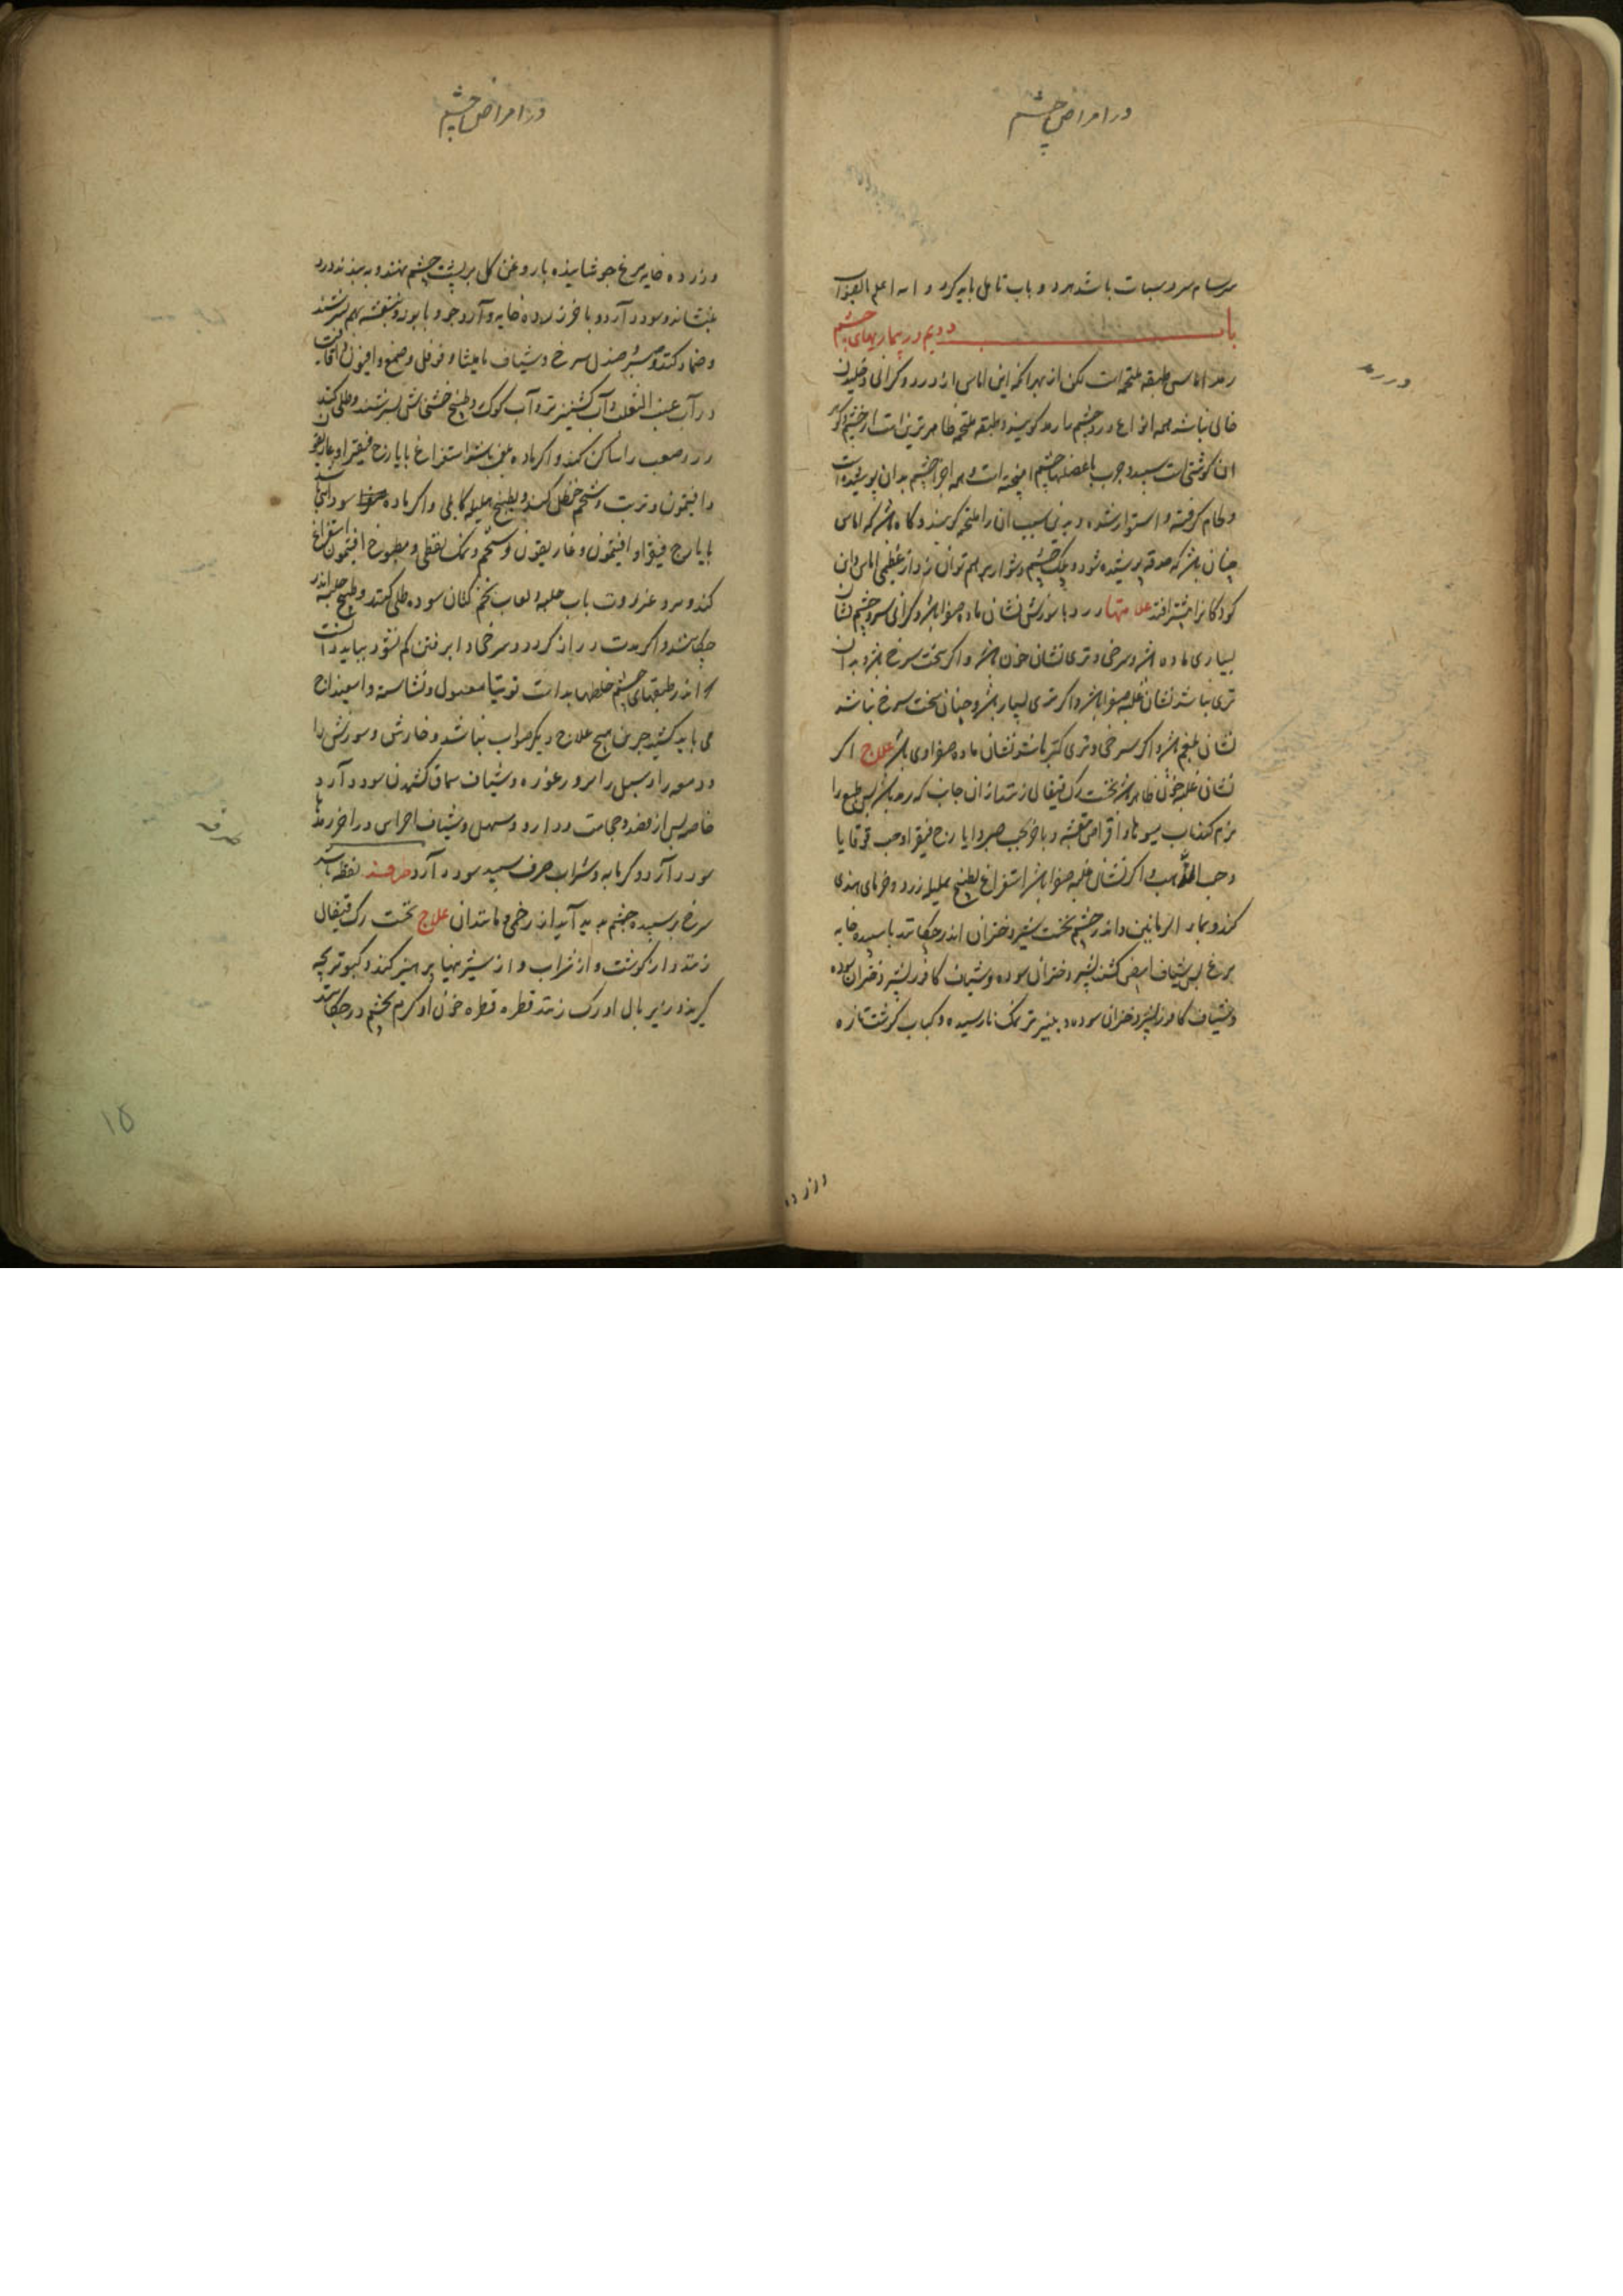 در امراض چشم
سرسام سرد و سبات باشد هر دو باب تامل باید کرد و الله اعلم بالصواب
باب دویم در بیماریهای چشم
در رمد
رمد اماس طبقه ملتحمه است لکن از بهر انکه این اماس از درد و کرانی و خلیدن
خالی نباشد همه انواع درد چشم را رمد کویند و طبقه ملتحمه ظاهرترین است از چشم و کوهر
ان کوشتی است سپید و چرب با عضلهاء چشم امیخته است و همه اجزا چشم بدان پوشیده است
و طام کرفته و استوار شده و بدین سبب ان را ملتحمه کویند و کاه باشد که اماس
چنان باشد که حدقه پوشیده شود و پلک چشم دشوار بر هم توان زد از عظیمی اماس و این
کودکان را بیشتر افتد علامتها درد با سوزش نشان ماده صفرا باشد و کرانی سر و چشم نشان
بسیاری ماده باشد و سرخی و تری نشان خون باشد و اکر سخت سرخ باشد و بدان
تری نباشد نشان غلبه صفرا باشد و اکر تری بسیار باشد و چنان سخت سرخ نباشد
نشان بلغم باشد و اکر سرخی و تری کمتر باشد نشان ماده سوداوی باشد علاج اکر
نشان غلبه خون ظاهر باشد نخست رک قیفال زنند از ان جانب که رمد باشد پس طبع را
نرم کنند باب میوها و اقراص بنفشه و باخر بحب صبر و ایارج فیقرا و حب قوقایا
و حب الذهب و اکر نشان غلبه صفرا باشد استفراغ بطبیخ هلیله زرد و خرمای هندی
کنند و بماء الرمانین و اندر چشم نخست شیر دختران اندر چکانند با سپیده خایه
مرغ پس شیاف ابیض کشند بشیر دختران سوده و شیاف کافور بشیر دختران سوده
و شیاف کافور بشیر دختران سوده و پنیر تر نمک نارسیده و کباب کوشت تازه
وزرده
در امراض چشم
وزرده خایه مرغ جوشانیده با روغن کل بر پشت چشم نهند و به بندند درد
بنشاند و سود دارد و باخر زرده خایه و آرد جو و بابونه و بنفشه بهم بسرشند
و ضماد کنند و صبر و صندل سرخ و شیاف مامیثا و فوفل و صمغ و افیون و اقاقیا
در آب عنب الثعلب و آب کشنیز تر و آب کوک و طبیخ خشخاش بسرشند و طلی کنند
درد صعب را ساکن کند و اکر ماده بلغمی باشد استفراغ بایارج فیقرا و غاریقون
و افتیمون و تربت و شحم حنظل کنند و بطبیخ هلیله کابلی و اکر ماده سوداوی باشد
بایارج فیقرا و افتیمون و غاریقون و شحم و نمک نفطی و مطبوخ افتیمون استفراغ
کنند و مرو عنزروت باب حلبه و لعاب تخم کتان سوده طلی کنند و طبیخ حلبه اندر
چکانند و اکر مدت دراز کردد و سرخی و ابر فتن کم نشود بباید دانست
که اندر طبقهای چشم خلطها بد است توتیا مغسول و نشاسته و اسفیداج
می باید کشید جز این هیچ علاج دیکر صواب نباشد و خارش و سوزش را
و دمعه را و سبل را برود غوره و شیاف سماق کشیدن سود دارد
خاصه پس از فصد و حجامت و دارو مسهل و شیاف احمر اس در اخر رمدها
سود دارد و کرمابه و شراب صرف سپید سود دارد طرفه نقطه باشد
طرفه
سرخ بر سپیده چشم پدید آید از زخمی و مانند ان علاج نخست رک قیفال
زنند و از کوشت و از شراب و از شیرینیها پرهیز کند و کبوتر بچه
کیرند و زیر بال او رک زنند قطره قطره خون او کرم بچشم در چکانند
۱۵